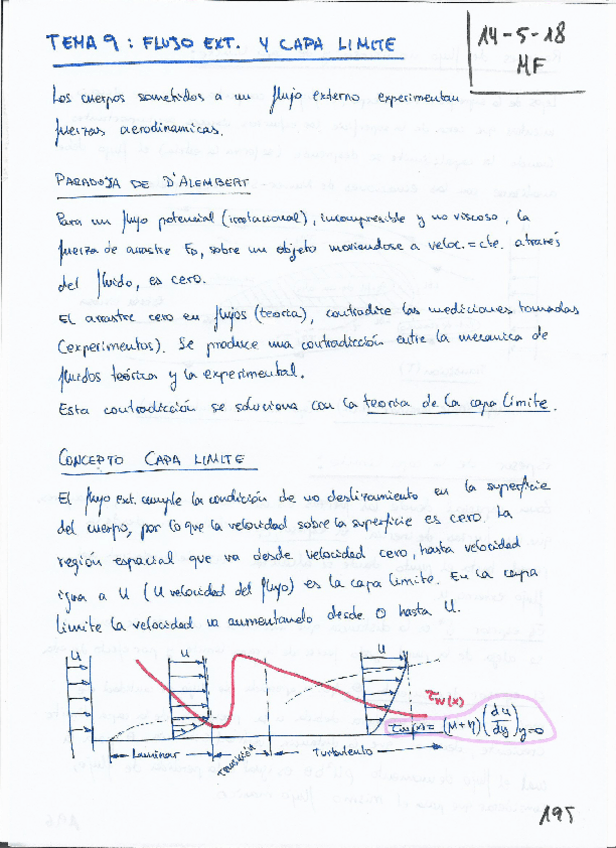 TEMA 9: FLUJO EXT. Y CAPA LIMITE
14-5-18
MF
Los cuerpos sometidos a un flujo externo experimentan
fuerzas aerodinamicas.
PARADOJA DE D'ALEMBERT
Para un flujo potencial (irrotacional), incompresible y no viscoso, la
fuerza de arrastre FD, sobre un objeto moviendose a veloc. = cte. através
del fluido, es cero.
El arrastre cero en flujos (teoria), contradice las mediciones tomadas
(experimentos). Se produce una contradicción entre la mecanica de
fluidos teórica y la experimental.
Esta contradicción se soluciona con la teoria de la capa límite.
CONCEPTO CAPA LIMITE
El flujo ext. cumple la condición de no deslizamiento en la superficie
del cuerpo, por lo que la velocidad sobre la superficie es cero. La
región espacial que va desde velocidad cero, hasta velocidad
igua a U (U velocidad del flujo) es la capa limite. En la capa
limite la velocidad va aumentando desde 0 hasta U.
U U U
τw(x)
τw(x) = (μ+η)(du/dy)y=0
Laminar Transición Turbulento
195